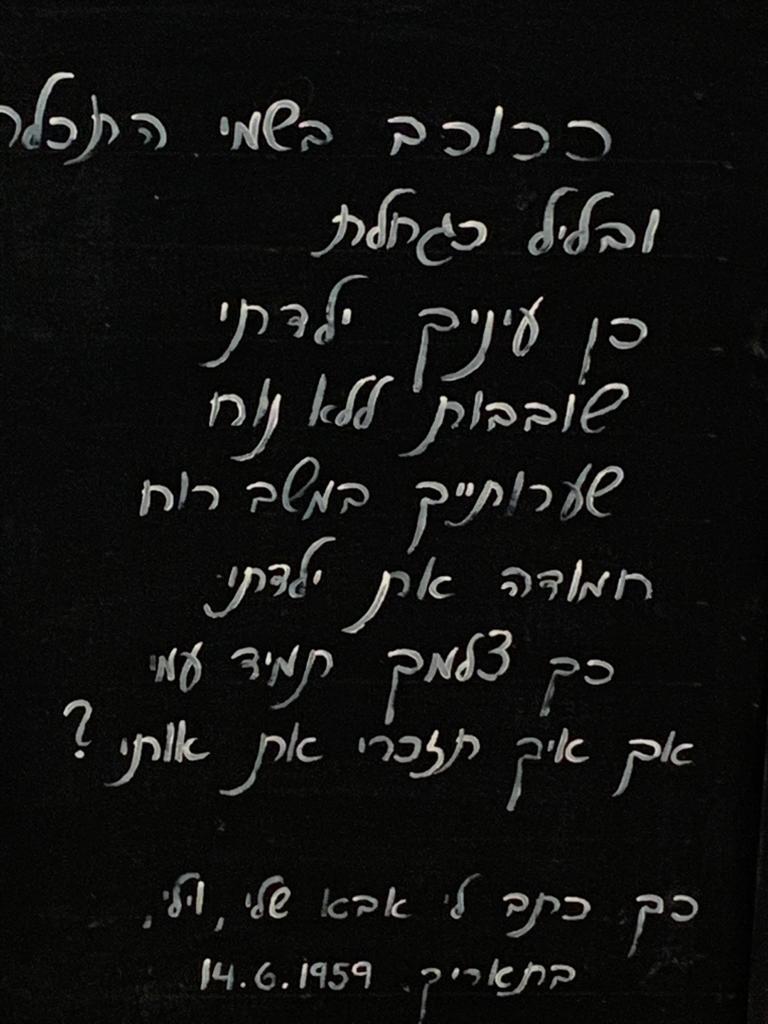 ככוכב בשמי התכלה
ובליל כגחלת
כן עיניך ילדתי
שובבות ללא נוח
שערותייך במשב רוח
חמודה את ילדתי
כך צלמך תמיד עמי
אך איך תזכרי את אותי?
כך כתב לי אבא שלי, וילי,
בתאריך 14.6.1959